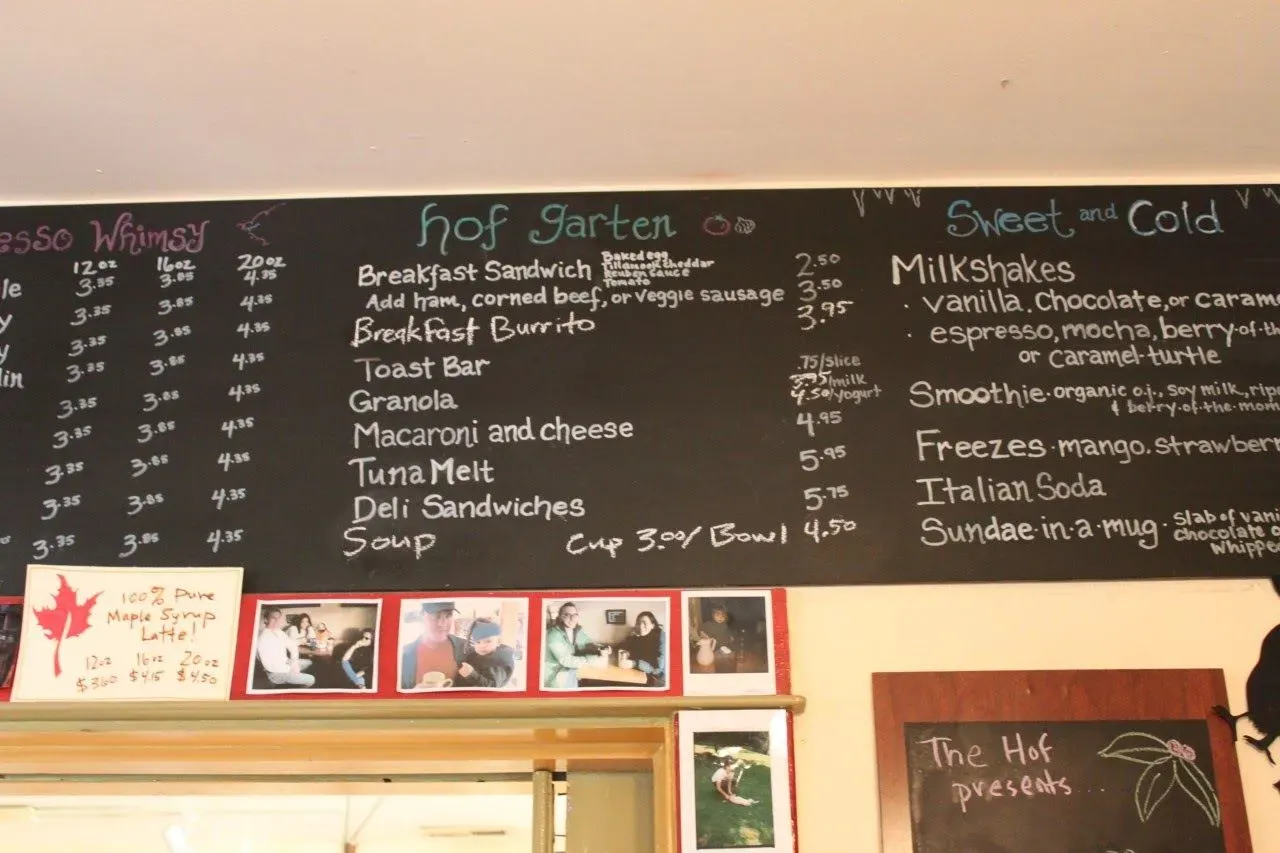 esso Whimsy
12oz 16oz 20oz
le 3.35 3.85 4.35
y 3.35 3.85 4.35
y 3.35 3.85 4.35
lin 3.35 3.85 4.35
3.35 3.85 4.35
3.35 3.85 4.35
3.35 3.85 4.35
3.35 3.85 4.35
3.35 3.85 4.35
hof garten
Breakfast Sandwich Baked egg 2.50
Tillamook cheddar
Reuben sauce
Tomato
Add ham, corned beef, or veggie sausage 3.50
Breakfast Burrito 3.95
Toast Bar .75/slice
Granola 3.75/milk
4.50/yogurt
Macaroni and cheese 4.95
Tuna Melt 5.95
Deli Sandwiches 5.75
Soup Cup 3.00/ Bowl 4.50
Sweet and Cold
Milkshakes
· vanilla, chocolate, or carame
· espresso, mocha, berry-of-th
or caramel-turtle
Smoothie · organic o.j., soy milk, rip
& berry-of-the-mom
Freezes · mango, strawberr
Italian Soda
Sundae-in-a-mug · slab of vani
chocolate
whippe
100% Pure
Maple Syrup
Latte!
12oz 16oz 20oz
$3.60 $4.15 $4.50
The Hof
presents...